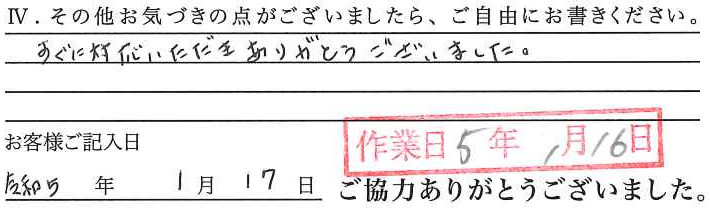 Ⅳ．その他お気づきの点がございましたら、ご自由にお書きください。
すぐに対応いただきありがとうございました。
お客様ご記入日
作業日5年1月16日
令和5年1月17日
ご協力ありがとうございました。